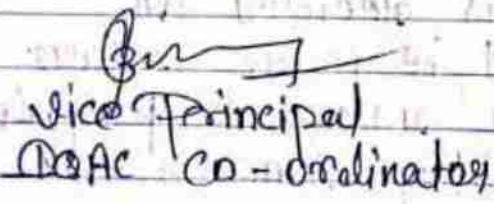 Vice Principal
IQAC Co-ordinator